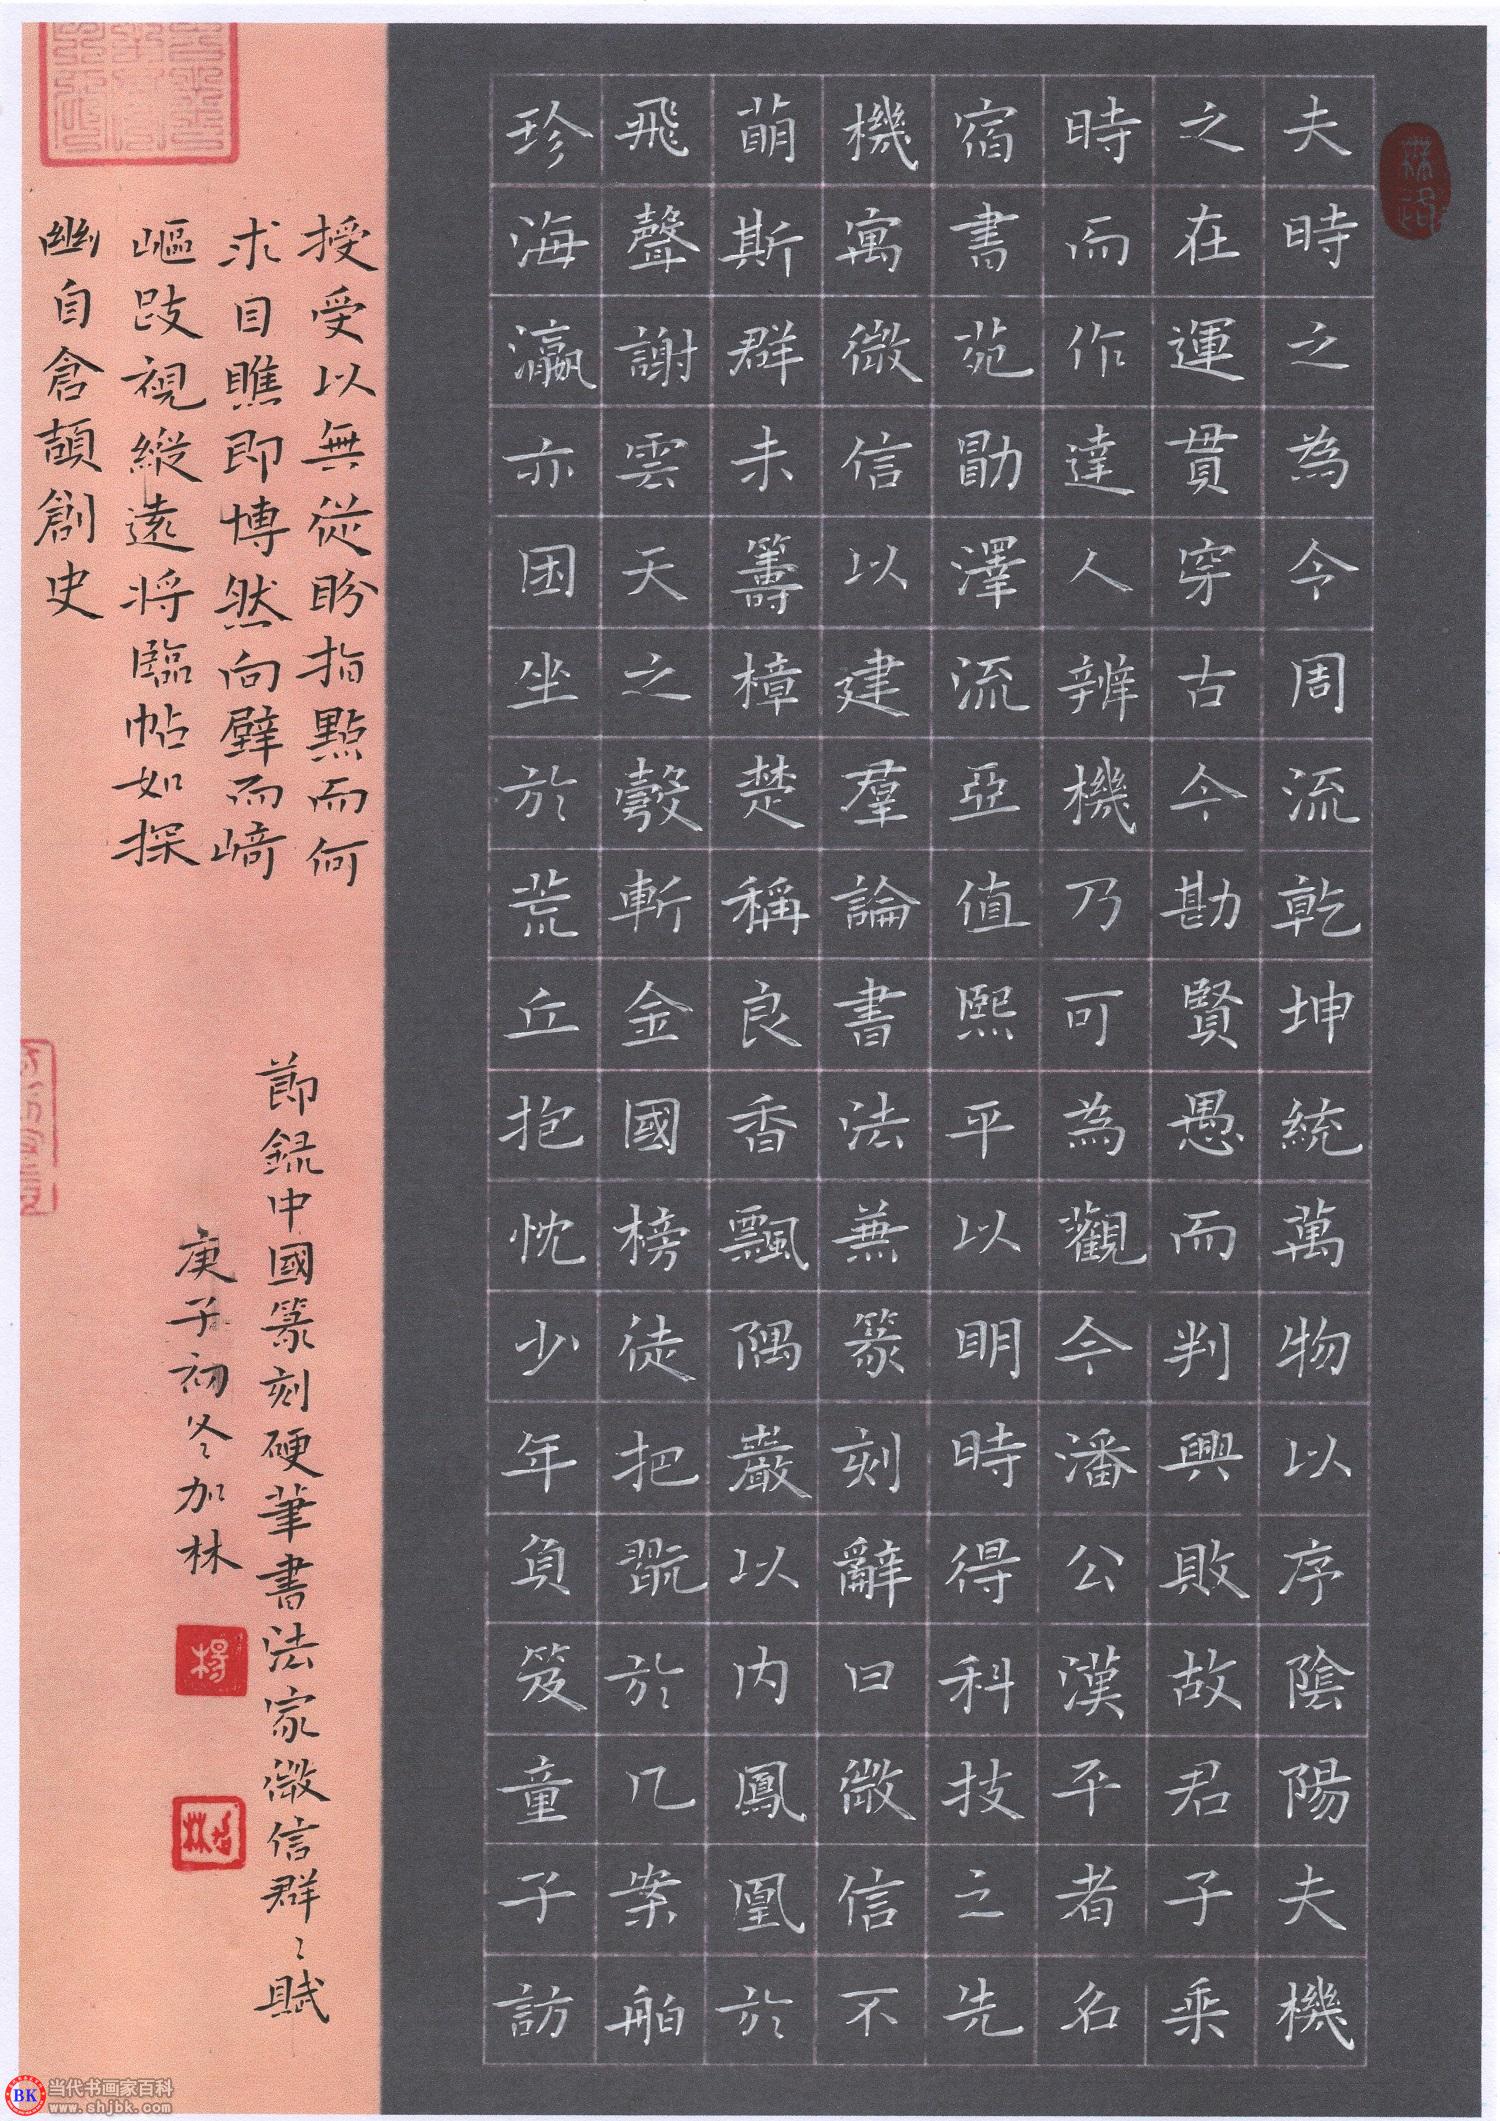 夫時之為今周流乾坤統萬物以序陰陽夫機
之在運貫穿古今勘賢愚而判興敗故君子乘
時而作達人辨機乃可為觀今潘公漢平者名
宿書苑勖澤流亞值熙平以明時得科技之先
機寓微信以建羣論書法兼篆刻辭曰微信不
萌斯群未籌樟楚稱良香飄隅巖以內鳳凰於
飛聲謝雲天之斬金國榜徒把翫於几案舶
珍海瀛亦困坐於荒丘抱忱少年負笈童子訪
授受以無從盼指點而何
求目瞧即博然向壁而崎
嶇跂視縱遠將臨帖如探
幽自倉頡創史
節錄中國篆刻硬筆書法家微信群〻賦
庚子初冬加林
楊
BK
当代书画家百科
www.shjbk.com